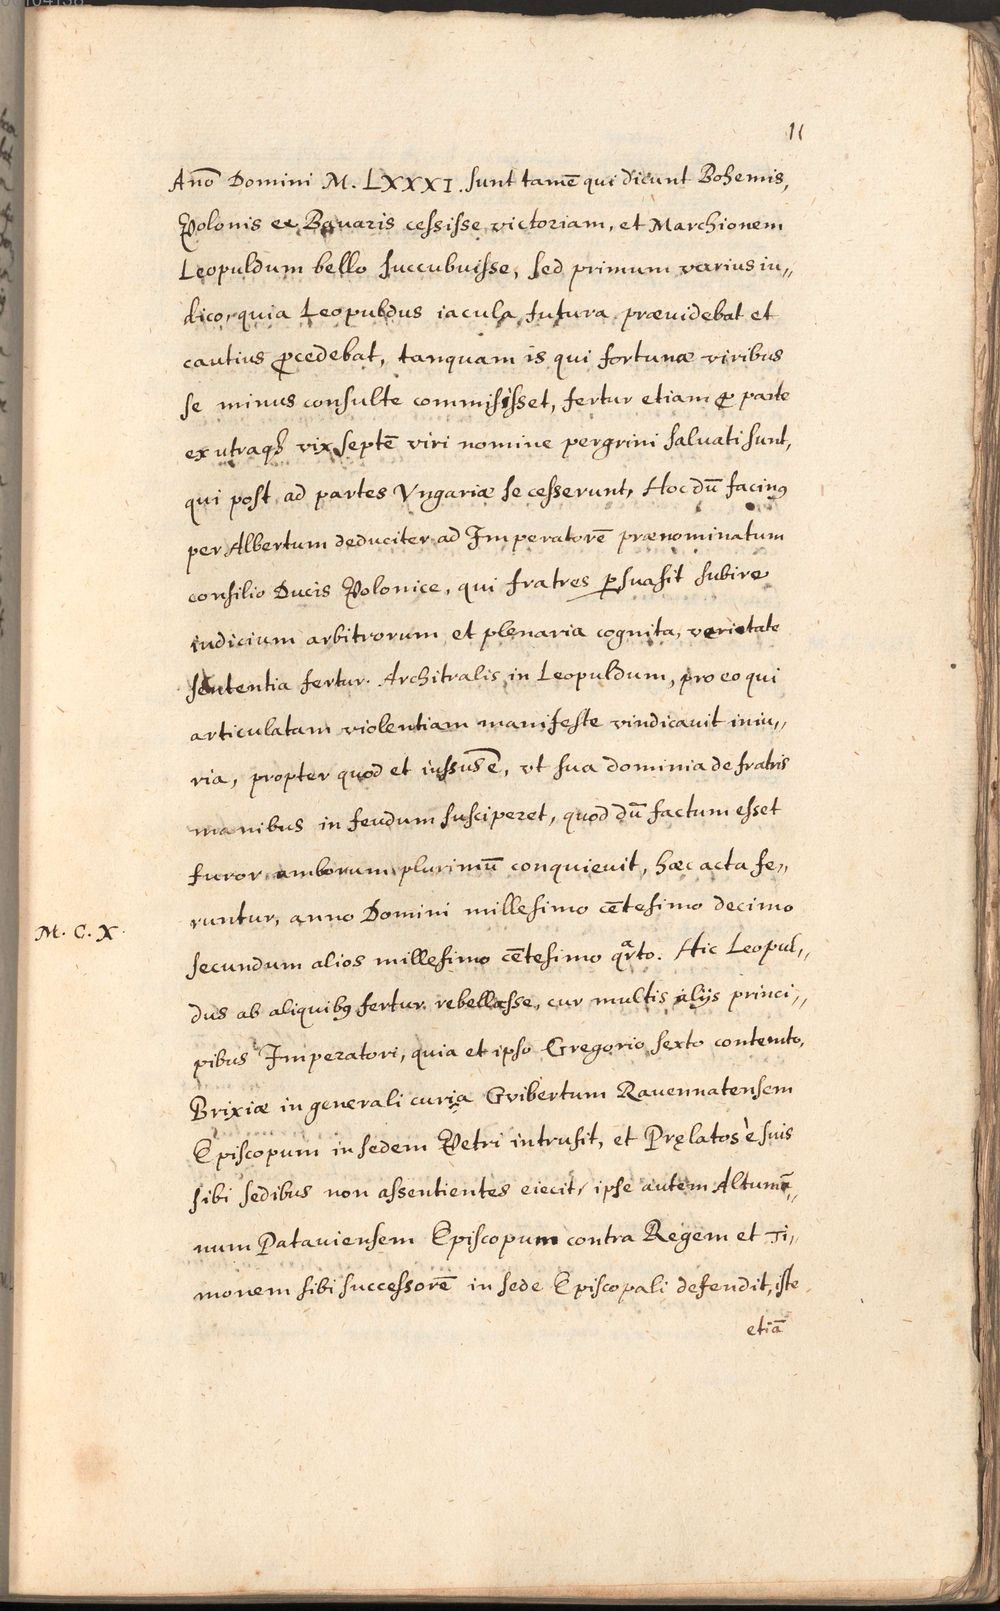 11
Año Domini M. LXXXI. sunt tamē qui dicunt Bohemis,
Polonis ex Bavaris cessisse victoriam, et Marchionem
Leopuldum bello succubuisse, sed primum varius iu,,
dico, quia Leopuldus iacula futura prævidebat et
cautius ꝓcedebat, tanquam is qui fortunæ viribus
se minus consulte commisisset, fertur etiam ꝙ parte
ex utraqꝫ vix septē viri nomine pergrini salvati sunt,
qui post ad partes Vngariæ se cesserunt, Hoc dū facinꝰ
per Albertum deduciter ad Imperatorē prænominatum
consilio Ducis Polonice, qui fratres ꝑsuasit subire
iudicium arbitrorum et plenaria cognita, verietate
sententia fertur. Architralis in Leopuldum, pro eo qui
articulatam violentiam manifeste vindicavit iniu,,
ria, propter quod et iussus ē, vt sua dominia de fratris
manibus in feudum susciperet, quod dū factum esset
furor amborum plurimū conquievit, hæc acta fe,,
runtur, anno Domini millesimo cētesimo decimo
M. C. X.
secundum alios millesimo cētesimo qᵃrto. Hic Leopul,,
dus ab aliquibꝰ fertur rebellasse, cur multis alijs princi,,
pibus Imperatori, quia et ipso Gregorio sexto contento,
Brixiæ in generali curia Gvibertum Ravennatensem
Episcopum in sedem Petri intrusit, et Pręlatos è suis
sibi sedibus non assentientes eiecit, ipse autem Altumā,,
num Pataviensem Episcopum contra Regem et Ti,,
monem sibi successorē in sede Episcopali defendit, iste
etiā